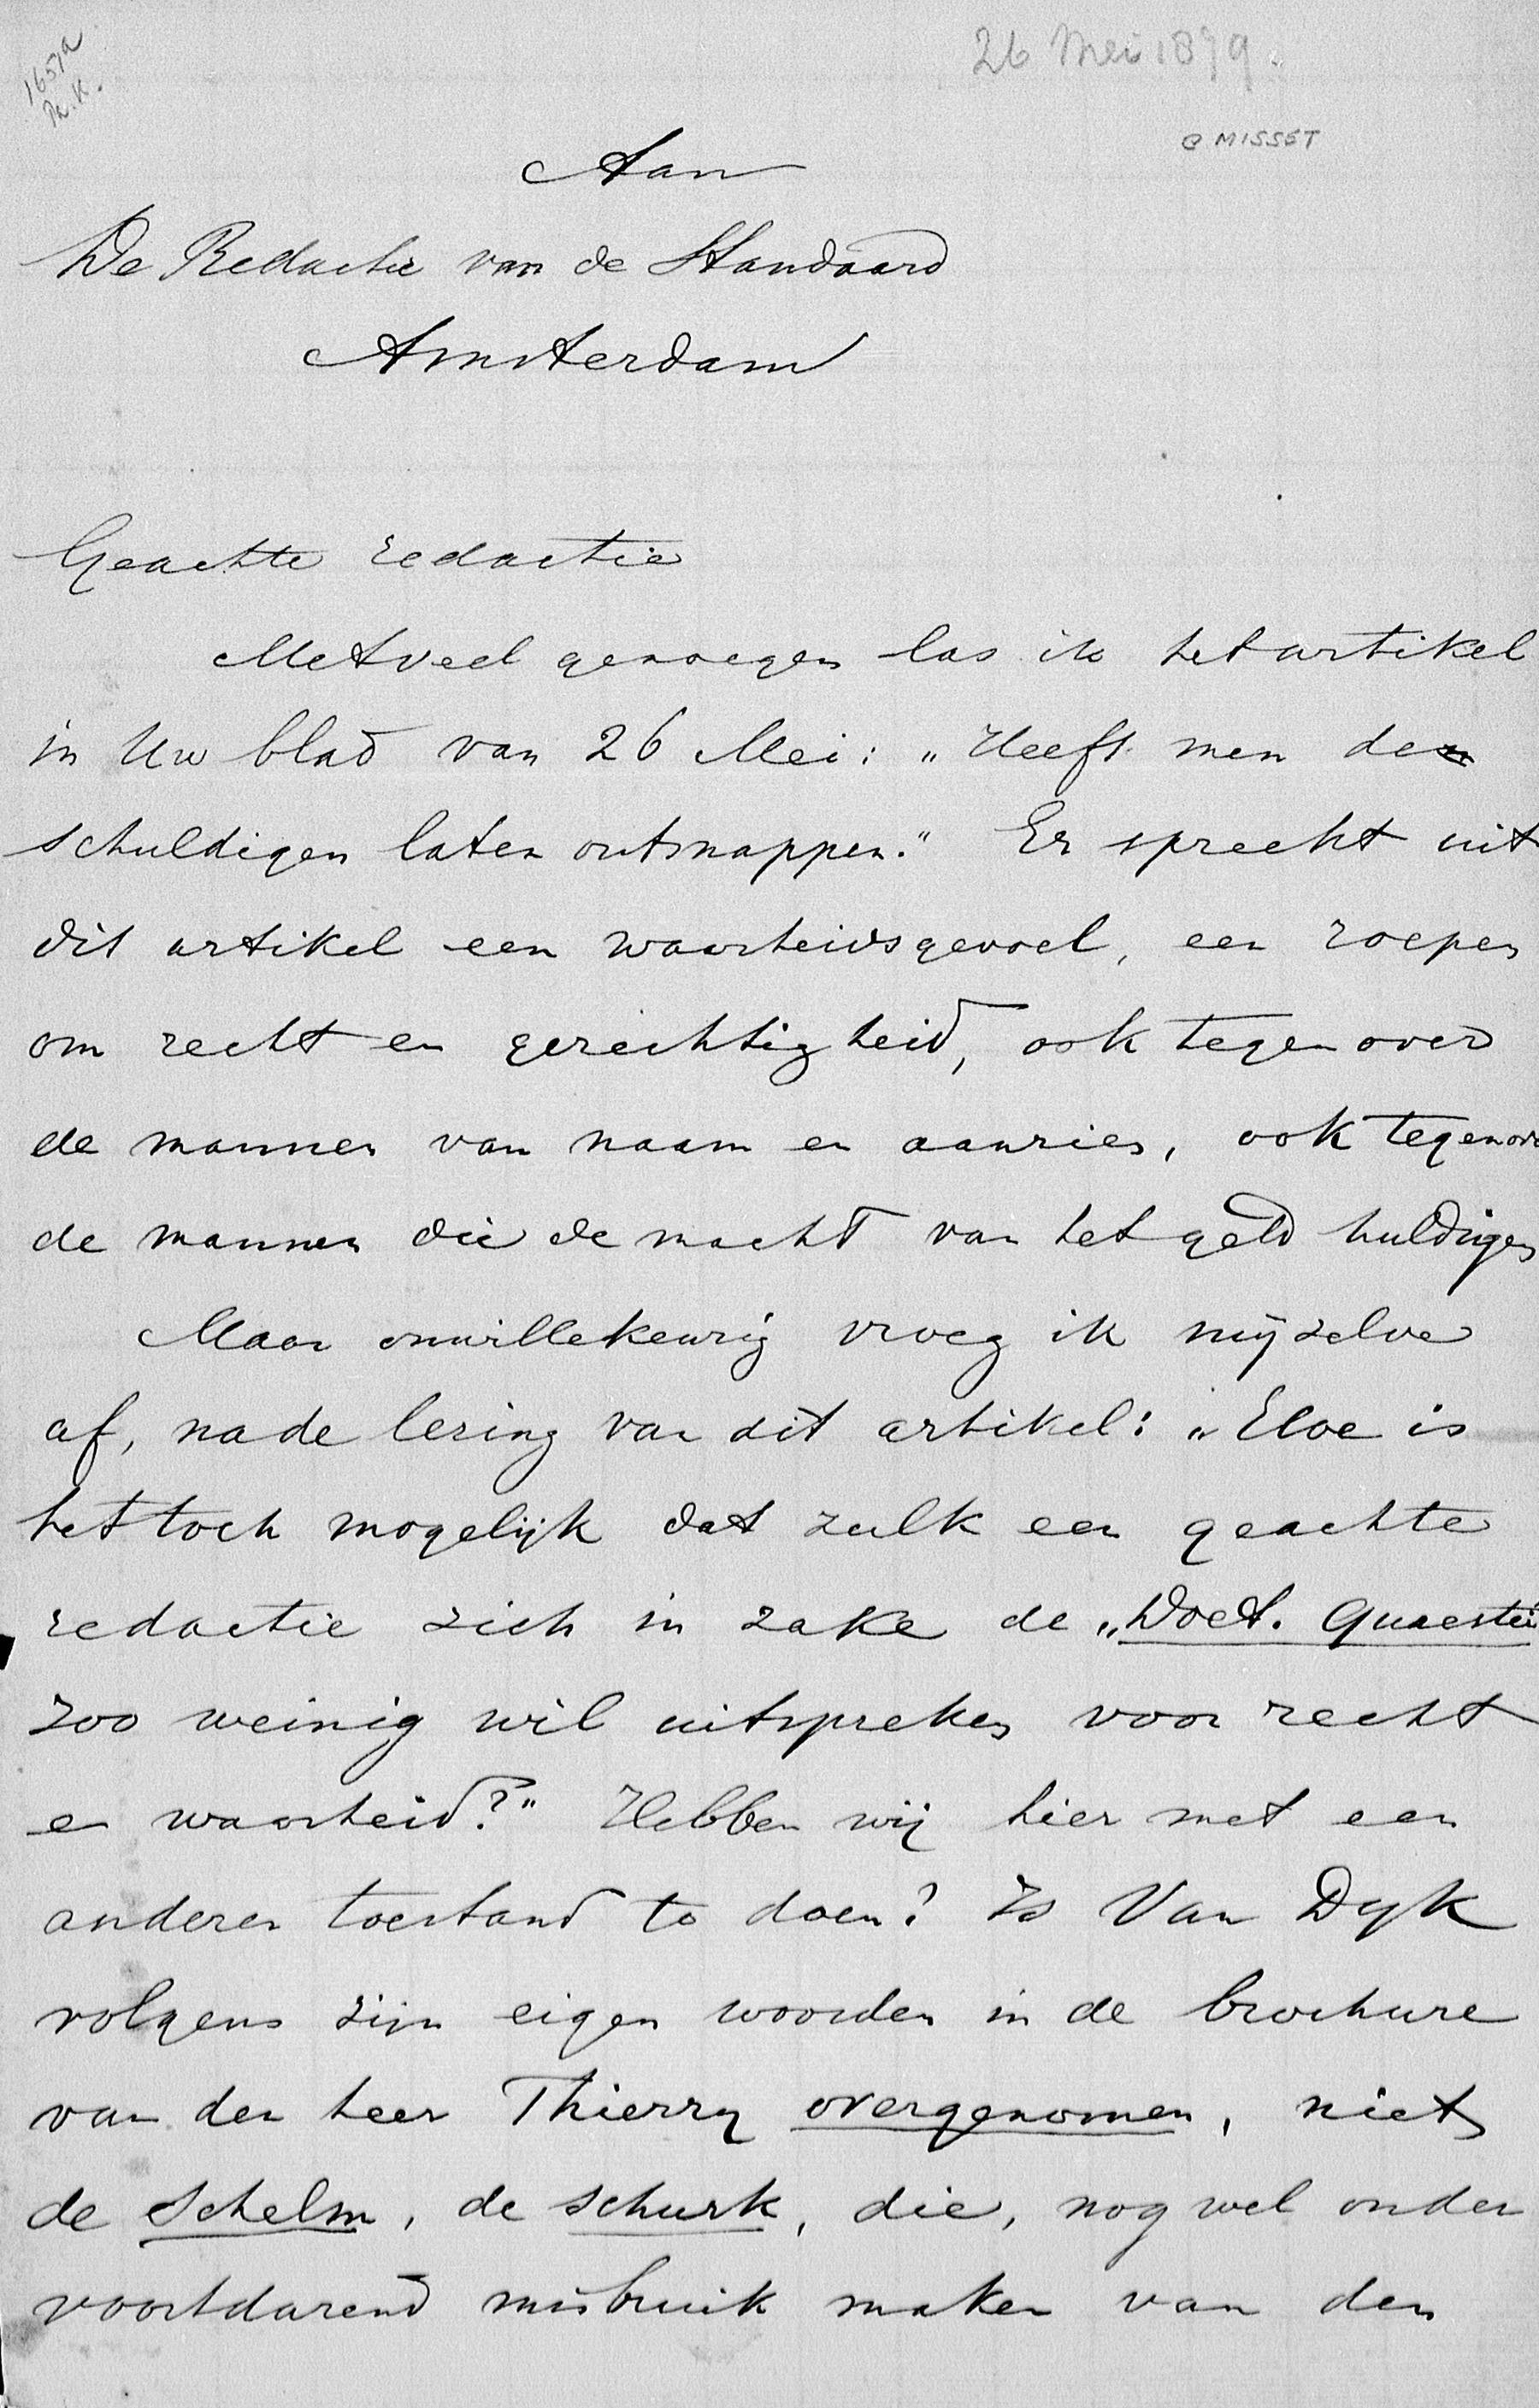 1651a
Th. K.
26 Mei 1879.
C MISSET
Aan
De Redactie van de Standaard
Amsterdam
Geachte redactie
Met veel genoegen las ik het artikel
in Uw blad van 26 Mei: „Heeft men de
schuldigen laten ontsnappen." Er spreekt uit
dit artikel een waarheidsgevoel, een roepen
om recht en gerechtigheid, ook tegenover
de mannen van naam en aanzien, ook tegenov
de mannen die de macht van het geld huldigen
Maar onwillekeurig vroeg ik mijzelve
af, na de lezing van dit artikel: „Hoe is
het toch mogelijk dat zulk een geachte
redactie zich in zake de „Doet. Quaestie
zoo weinig wil uitspreken voor recht
en waarheid?" Hebben wij hier met een
anderen toestand te doen? Is Van Dyk
volgens zijn eigen woorden in de brochure
van den heer Thierry overgenomen, niet
de schelm, de schurk, die, nog wel onder
voortdurend misbruik maken van den